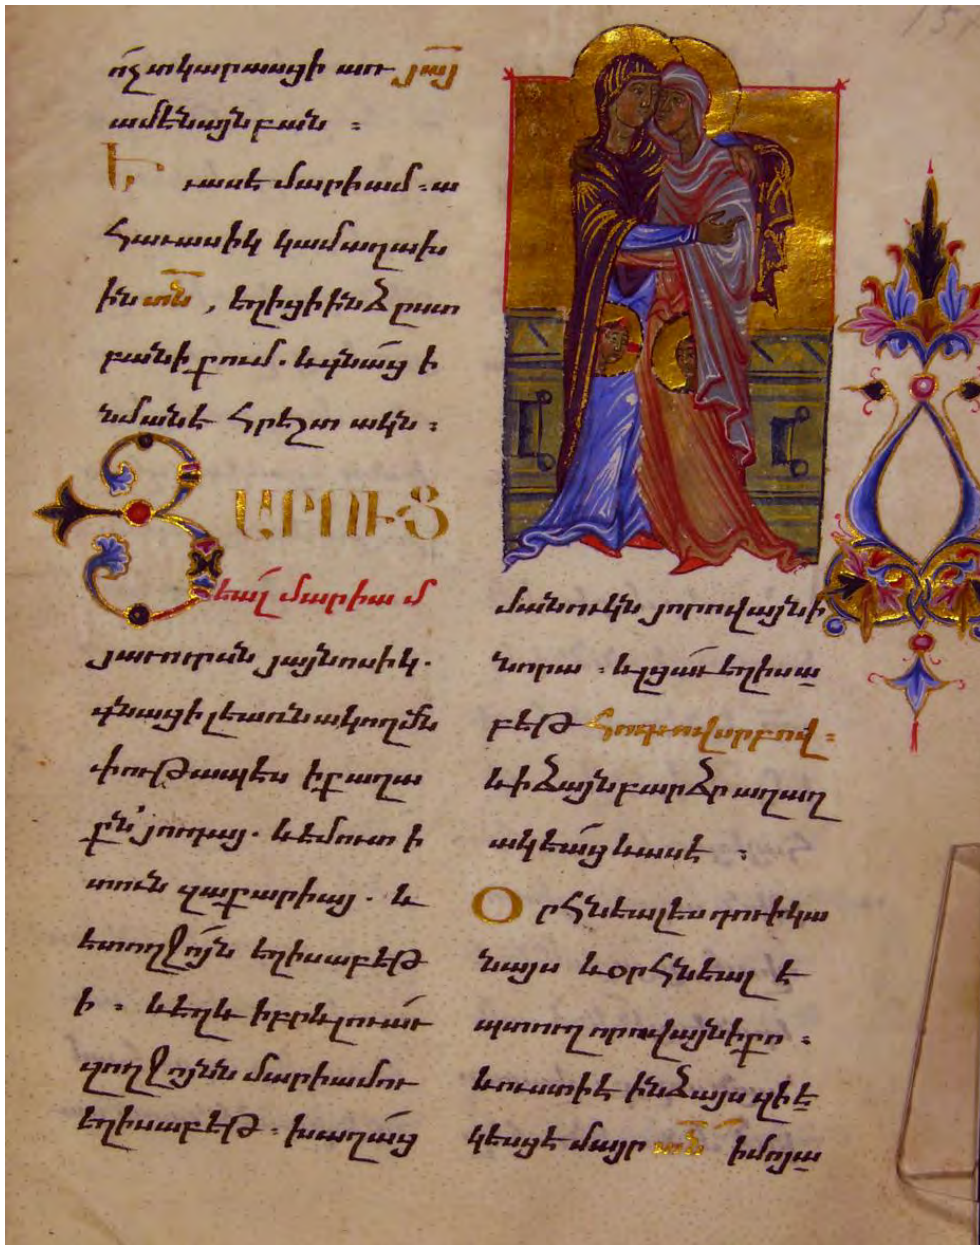 ո՛չ տկարասցի առ յա՟յ
ամենայն բան ։
Ե ւ ասէ մարիամ ։ ա
հաւասիկ կամ աղախ
ին տ՟ն , եղիցի ինձ ըստ
բանի քում . և գնաց ի
նմանէ հրեշտակն ։
ՅԱՐՈՒՑ
եալ մարիամ
յաւուրսն յայնոսիկ .
գնաց ի լեառնակողմն
փութապես ի քաղա
քն՛ յուդայ . և եմուտ ի
տուն զաքարիայ . և
ետ ողջոյն եղիսաբեթ
ի ։ և եղև իբրև լուաւ
զողջոյնն մարիամու
եղիսաբեթ ։ խաղաց
մանուկն յորովայնի
նորա ։ և լցաւ եղիսա
բեթ հոգւով սրբով ։
և ի ձայն բարձր աղաղ
ակեաց և ասէ ։
Օ րհնեալ ես դու ի կա
նայս և օրհնեալ է
պտուղ որովայնի քո ։
և ուստի է ինձ այս զի ե
կեսցէ մայր տ՟ն իմոյ ա